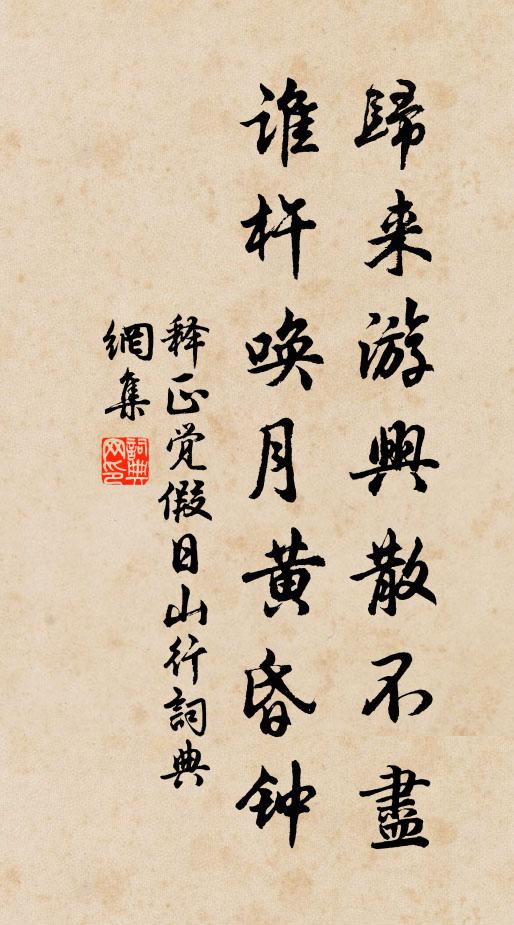 歸来游興散不盡
谁杵唤月黄昏钟
释正觉假日山行詞典
網集
詞典
网印